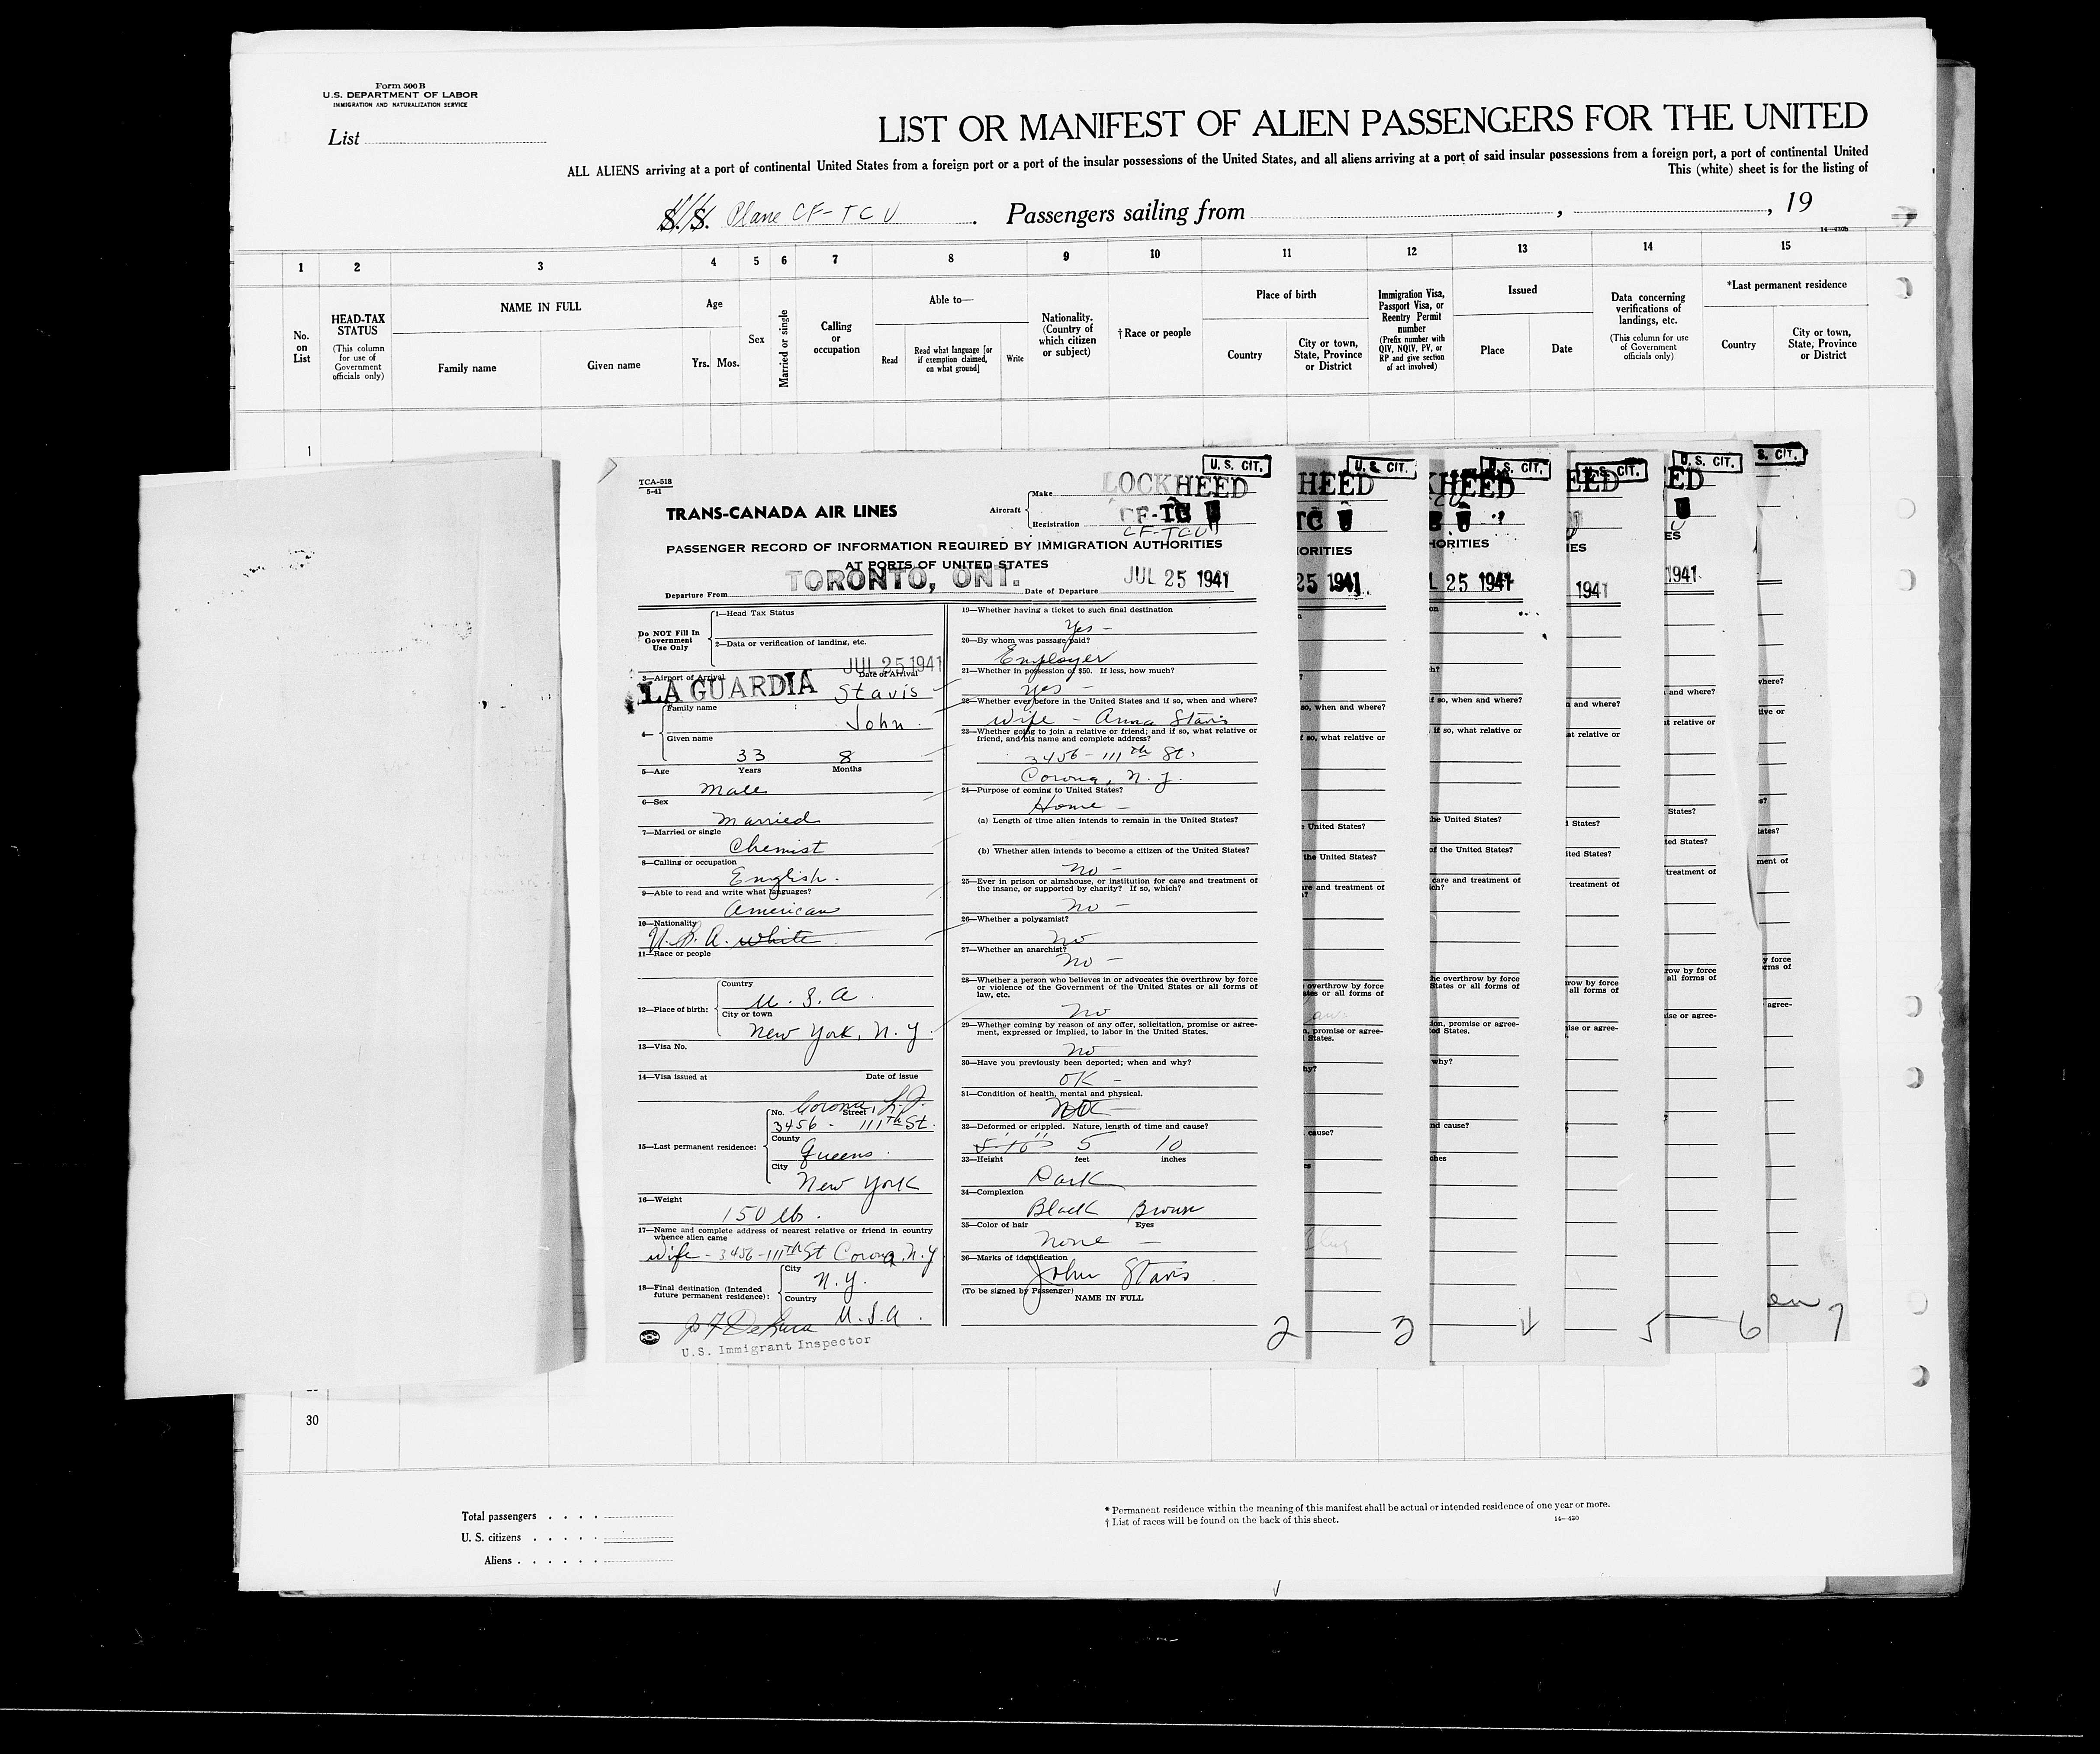 Form 500 B
U.S. DEPARTMENT OF LABOR
IMMIGRATION AND NATURALIZATION SERVICE
List
LIST OR MANIFEST OF ALIEN PASSENGERS FOR THE UNITED
ALL ALIENS arriving at a port of continental United States from a foreign port or a port of the insular possessions of the United States, and all aliens arriving at a port of said insular possessions from a foreign port, a port of continental United
This (white) sheet is for the listing of
S. S. Plane CF-TCU . Passengers sailing from , , 19
14—430b
1 2 3 4 5 6 7 8 9 10 11 12 13 14 15
No. on List
HEAD-TAX STATUS
(This column for use of Government officials only)
NAME IN FULL
Family name Given name
Age
Yrs. Mos.
Sex
Married or single
Calling or occupation
Able to—
Read
Read what language [or if exemption claimed, on what ground]
Write
Nationality. (Country of which citizen or subject)
† Race or people
Place of birth
Country
City or town, State, Province or District
Immigration Visa, Passport Visa, or Reentry Permit number
(Prefix number with QIV, NQIV, PV, or RP and give section of act involved)
Issued
Place Date
Data concerning verifications of landings, etc.
(This column for use of Government officials only)
*Last permanent residence
Country
City or town, State, Province or District
1
TCA-518
5-41
U. S. CIT.
TRANS-CANADA AIR LINES
Aircraft
Make LOCKHEED
Registration CF-TC U
CF-TCU
PASSENGER RECORD OF INFORMATION REQUIRED BY IMMIGRATION AUTHORITIES
AT PORTS OF UNITED STATES
Departure From TORONTO, ONT. Date of Departure JUL 25 1941
Do NOT Fill In Government Use Only
1—Head Tax Status
2—Data or verification of landing, etc.
JUL 25 1941
3—Airport of Arrival Date of Arrival
LA GUARDIA
Stavis
4—
Family name
John
Given name
33 8
5—Age Years Months
Male
6—Sex
Married
7—Married or single
Chemist
8—Calling or occupation
English.
9—Able to read and write what languages?
American
10—Nationality
U.S.A. white
11—Race or people
12—Place of birth:
Country
U.S.A.
City or town
New York, N.Y
13—Visa No.
14—Visa issued at Date of issue
Corona, L.I.
No. Street
3456 - 111th St.
15—Last permanent residence:
County
Queens.
City
New York
16—Weight
150 lbs.
17—Name and complete address of nearest relative or friend in country
whence alien came
Wife - 3456-111th St Corona, N.Y
18—Final destination (Intended future permanent residence):
City
N.Y.
Country
U.S.A.
U.S. Immigrant Inspector
19—Whether having a ticket to such final destination
Yes -
20—By whom was passage paid?
Employer
21—Whether in possession of $50. If less, how much?
Yes -
22—Whether ever before in the United States and if so, when and where?
Wife - Anna Stavis
23—Whether going to join a relative or friend; and if so, what relative or
friend, and his name and complete address?
3456-111th St.
Corona, N.Y.
24—Purpose of coming to United States?
Home -
(a) Length of time alien intends to remain in the United States?
(b) Whether alien intends to become a citizen of the United States?
No -
25—Ever in prison or almshouse, or institution for care and treatment of
the insane, or supported by charity? If so, which?
No -
26—Whether a polygamist?
No
27—Whether an anarchist?
No -
28—Whether a person who believes in or advocates the overthrow by force
or violence of the Government of the United States or all forms of
law, etc.
No
29—Whether coming by reason of any offer, solicitation, promise or agree-
ment, expressed or implied, to labor in the United States.
No
30—Have you previously been deported; when and why?
OK -
31—Condition of health, mental and physical.
32—Deformed or crippled. Nature, length of time and cause?
5'10" 5 10
33—Height feet inches
Dark
34—Complexion
Black Brown
35—Color of hair Eyes
None -
36—Marks of identification
John Stavis
(To be signed by Passenger)
NAME IN FULL
2 3 4 5 6 7
30
Total passengers
U. S. citizens
Aliens
* Permanent residence within the meaning of this manifest shall be actual or intended residence of one year or more.
† List of races will be found on the back of this sheet.
14—430